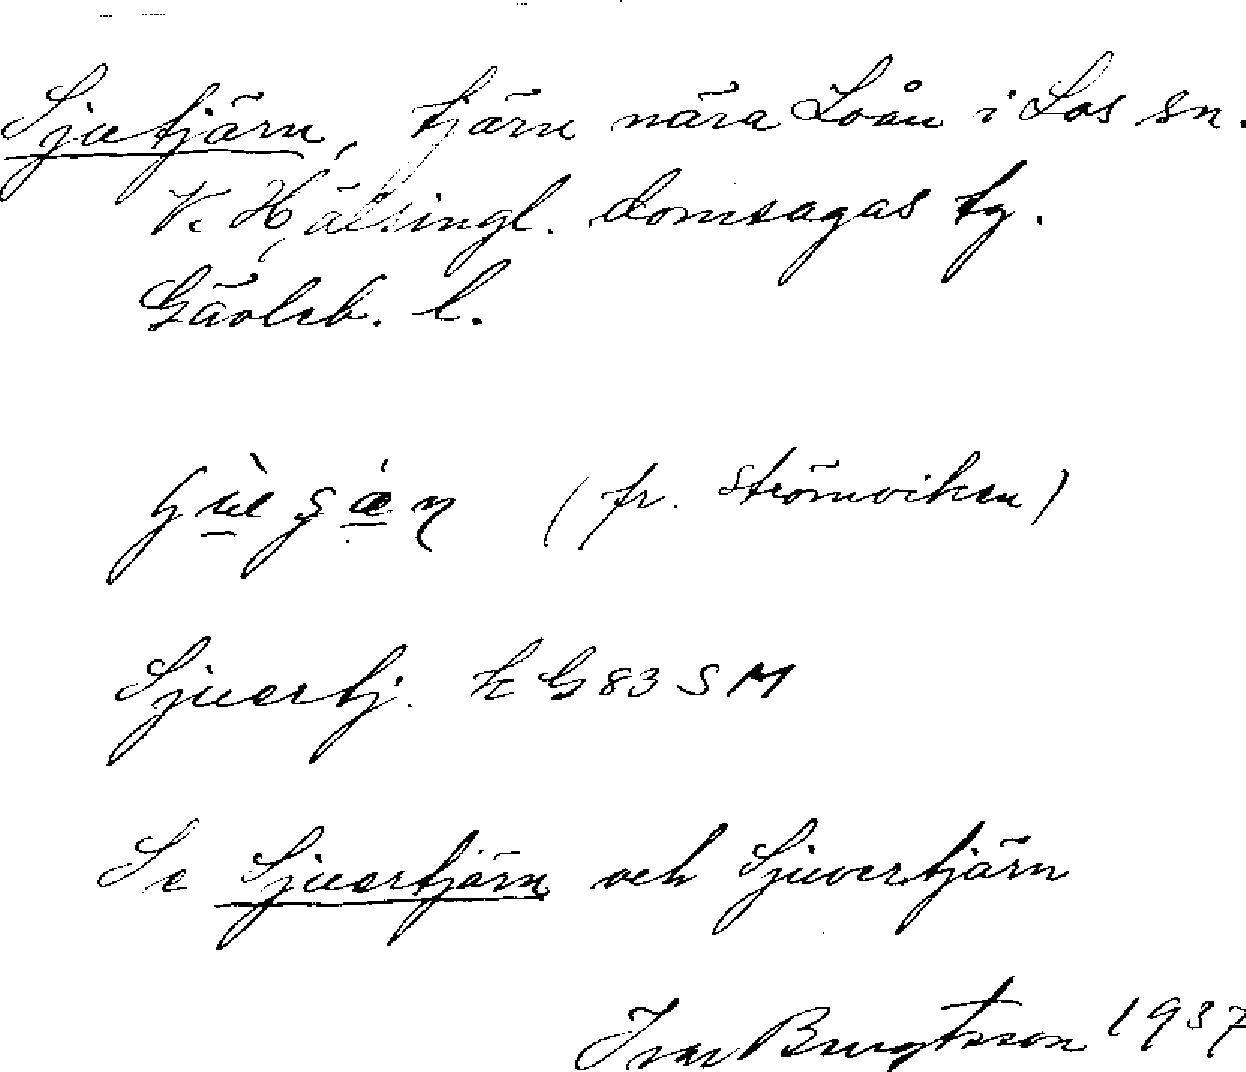 Sjutjärn, tjärn nära Loån i Los sn.
V. Hälsingl. domsagas tg.
Gävleb. l.
(fr. Strömviken)
Sjuertj. k G 83 S M
Se Sjuertjärn och Sjuvertjärn
Ivar Bengtsson 1937